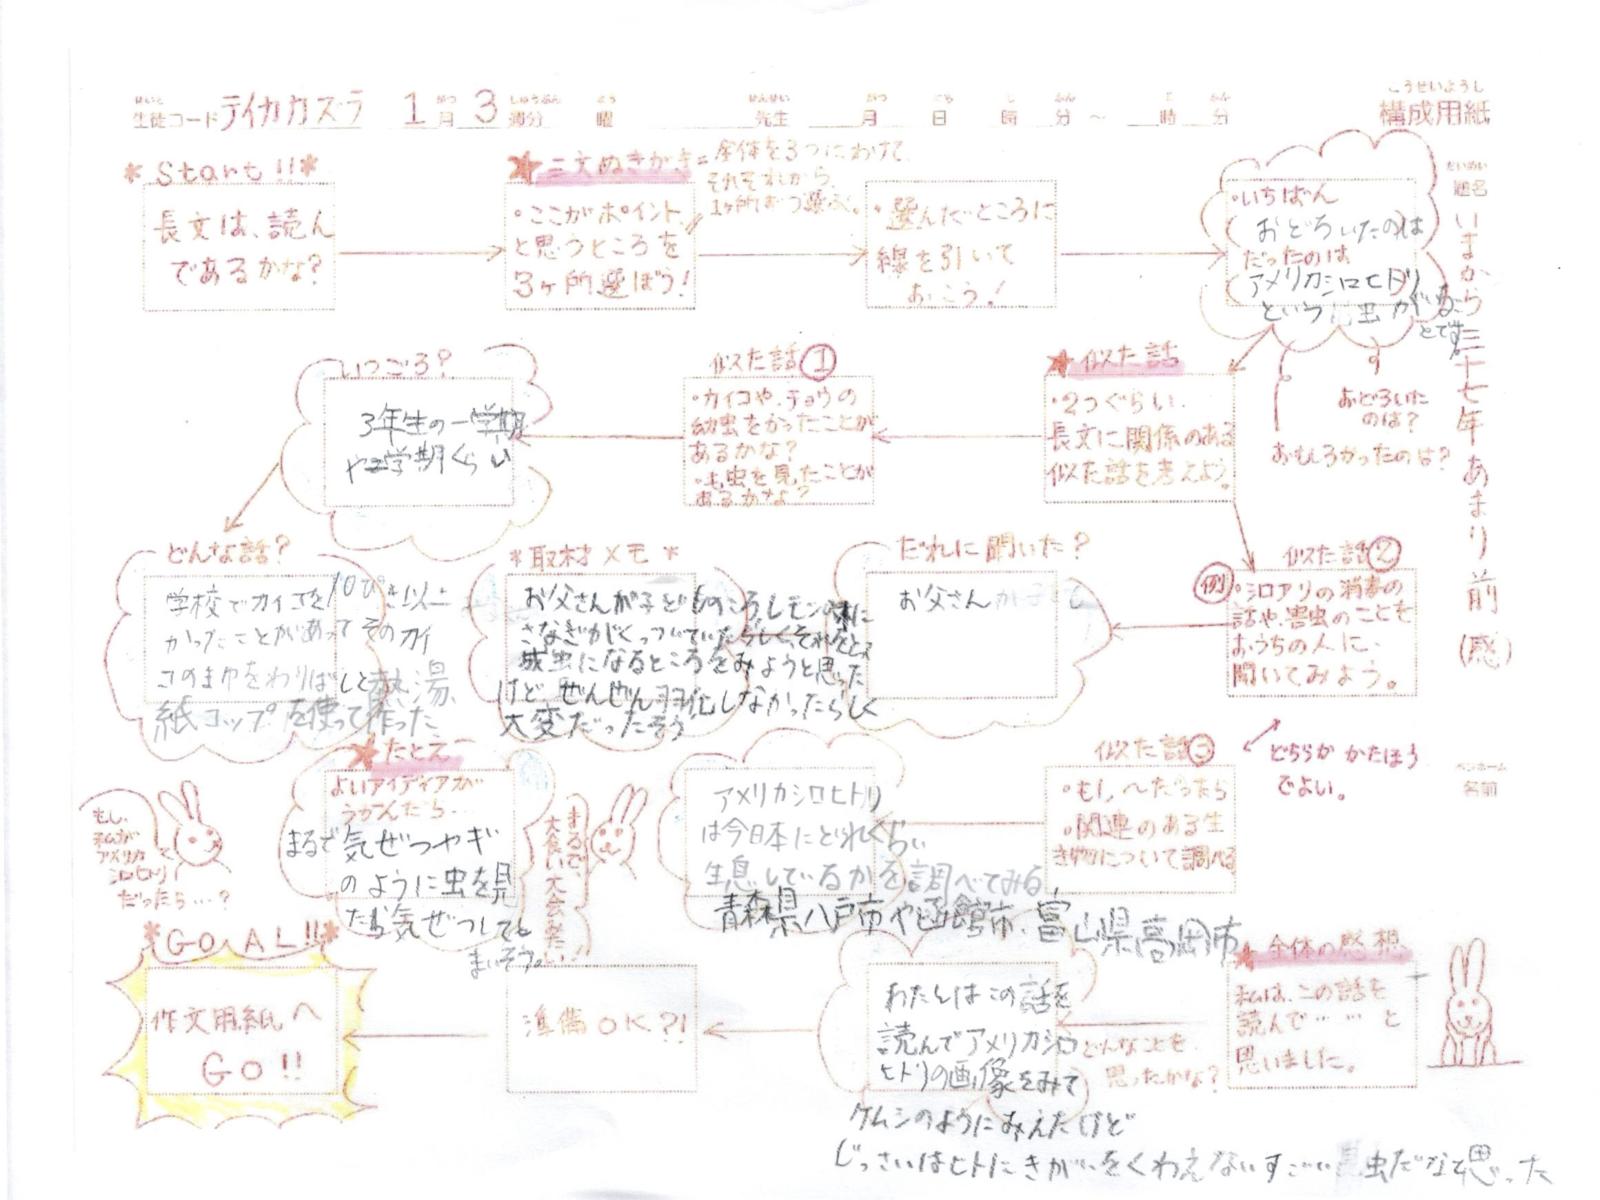 生徒コード テイカカズラ 1月 3週分 曜 先生 月 日 時 分 ～ 時 分
せいと がつ しゅうぶん よう せんせい がつ にち じ ふん じ ふん
こうせいようし
構成用紙
だいめい
題名
いまから三十七年あまり前(感)
＊Start!!＊
長文は、読ん
であるかな?
★三文ぬきがき=
全体を3つにわけて、
それぞれから、
1ヶ所ずつ選ぶ。
・ここがポイント、
と思うところを
3ヶ所選ぼう!
・選んだところに
線を引いて
おこう!
・いちばん
おどろいたのは
だったのは
アメリカシロヒトリ
という虫がいる
とです。
おどろいた
のは?
おもしろかったのは?
★似た話
・2つぐらい、
長文に関係のある
似た話を考えよう。
似た話①
・カイコや、チョウの
幼虫をかったことが
あるかな?
・毛虫を見たことが
あるかな?
いつごろ?
3年生の一学期
や二学期くらい
どんな話?
学校でカイコを10ぴき以上
かったことがあってそのカイ
コのまゆをわりばしと熱湯、
紙コップを使って作った
似た話②
例
・シロアリの消毒の
話や、害虫のことを
おうちの人に、
聞いてみよう。
だれに聞いた?
お父さん
＊取材メモ＊
お父さんが子どものころレモンの木に
さなぎがくっついていたらしくそれをとって
成虫になるところをみようと思った
けど、ぜんぜんヨヨ化しなかったらしく
大変だったそう
どちらかかたほう
でよい。
似た話3
・もし、〜だったら
・関連のある生
き物について調べる
アメリカシロヒトリ
は今日本にどれくらい
生息しているかを調べてみる
青森県八戸市や函館市、富山県高岡市
★たとえ
よいアイディアが
うかんだら…
まるで気ぜつヤギ
のように虫を見
たら気ぜつしてし
まいそう。
まるで、
大食い大会みたい!
もし、
私が
アメリカ
シロヒトリ
だったら…?
ペンネーム
名前
★全体の感想
私は、この話を
読んで……と
思いました。
どんなことを
思ったかな?
わたしはこの話を
読んでアメリカシロ
ヒトリの画像をみて
ケムシのようにみえたけど
じっさいはヒトにきがいをくわえないすごい虫だなて思った
準備OK?!
＊GOAL!!＊
作文用紙へ
GO!!